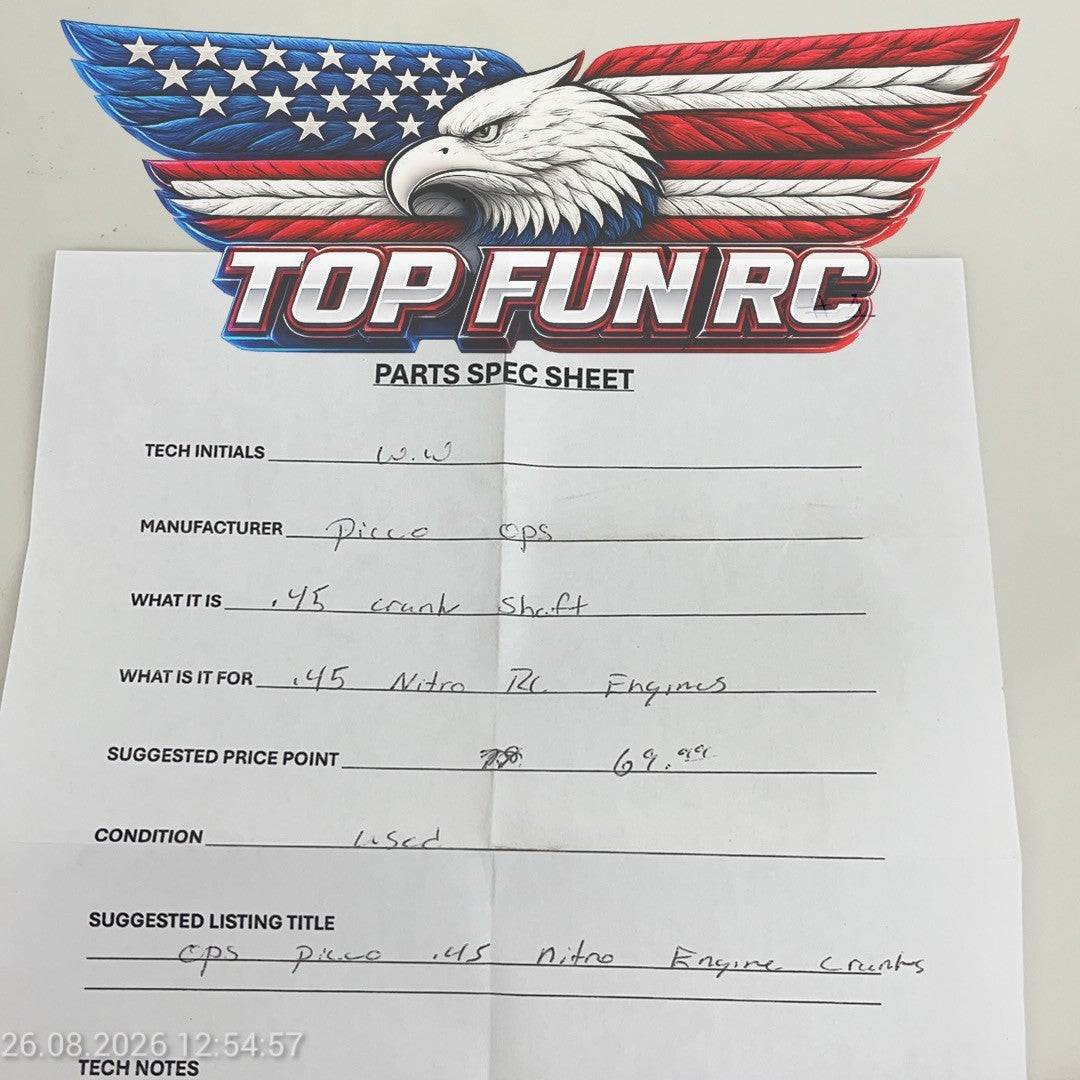 TOP FUN RC
PARTS SPEC SHEET
TECH INITIALS W.W
MANUFACTURER Picco OPS
WHAT IT IS .45 crank shaft
WHAT IS IT FOR .45 Nitro RC Engines
SUGGESTED PRICE POINT 69.99
CONDITION used
SUGGESTED LISTING TITLE
OPS Picco .45 Nitro Engine Cranks
26.08.2026 12:54:57
TECH NOTES